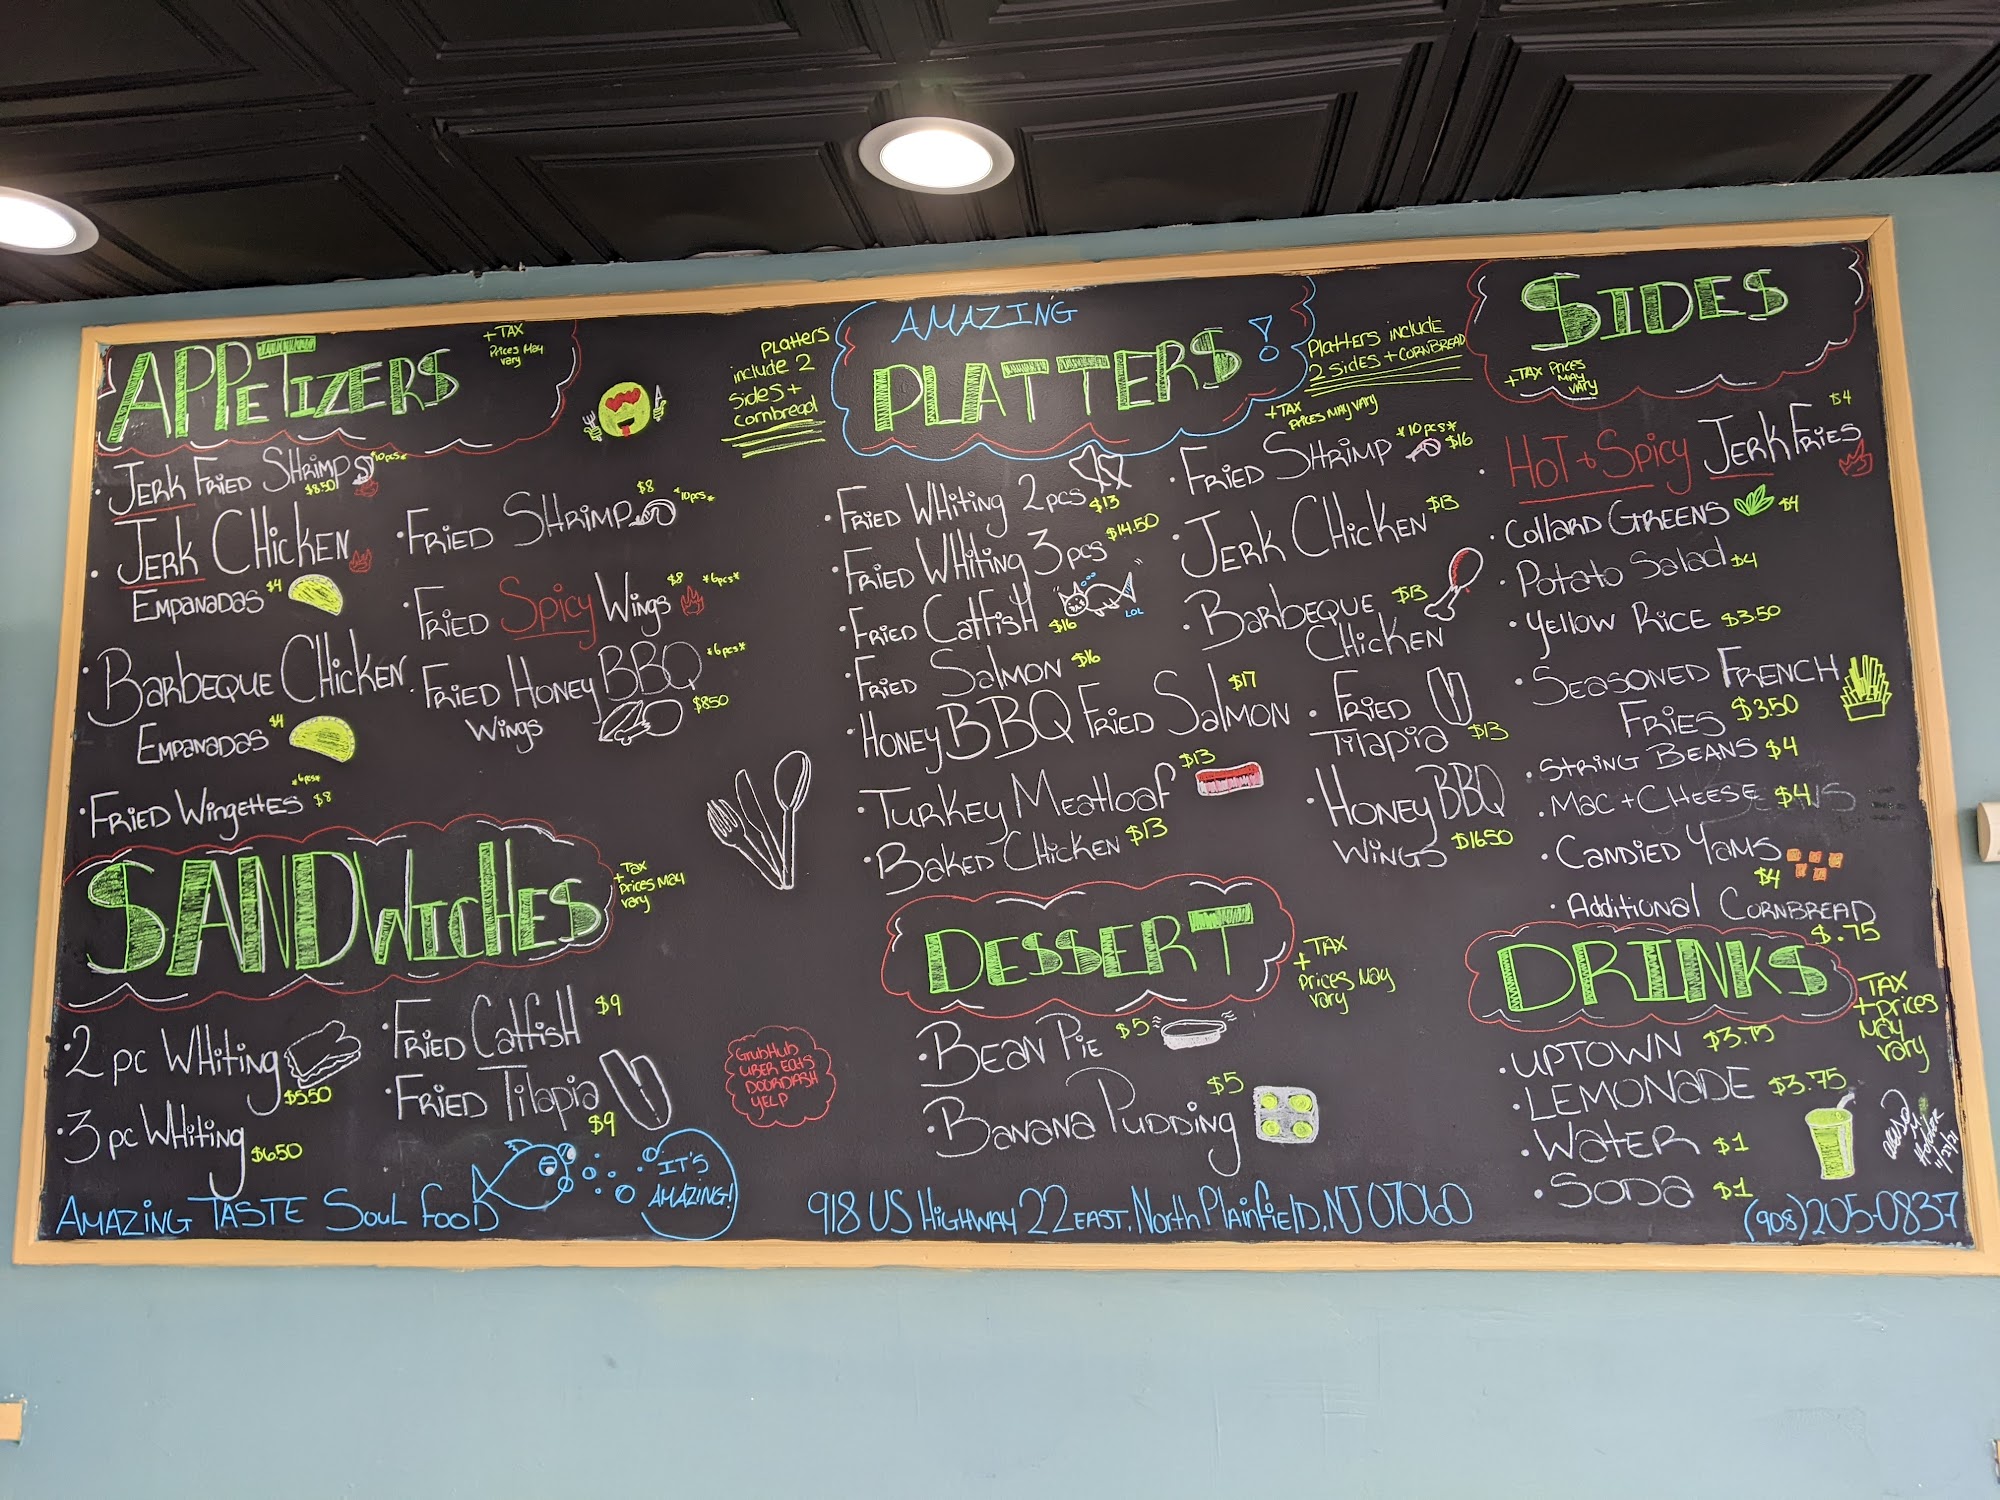 APPETIZERS
+ TAX
Prices May
vary
JERK FRIED SHRIMP *10pcs*
$8.50
JERK CHICKEN
EMPANADAS $4
BARBEQUE CHICKEN
EMPANADAS $4
FRIED WINGETTES *6pcs* $8
FRIED SHRIMP $8 *10pcs*
FRIED Spicy Wings $8 *6pcs*
FRIED HONEY BBQ *6pcs*
WINGS $8.50
SANDWICHES
+ Tax
Prices May
vary
2 pc WHiting $5.50
3 pc WHiting $6.50
FRIED Catfish $9
FRIED Tilapia $9
GrubHub
UBER EATS
DOORDASH
YELP
AMAZING TASTE SOUL FOOD
IT'S
AMAZING!
Platters
include 2
Sides +
Cornbread
AMAZING
PLATTERS!
Platters include
2 SIDES + CORNBREAD
+ TAX
PRICES MAY VARY
FRIED WHITING 2 pcs $13
FRIED WHITING 3 pcs $14.50
FRIED Catfish $16
LOL
FRIED SALMON $16
HONEY BBQ FRIED SALMON $17
TURKEY MEATLOAF $13
BAKED CHICKEN $13
FRIED SHRIMP *10 pcs* $16
JERK CHICKEN $13
BARBEQUE $13
CHICKEN
FRIED
Tilapia $13
HONEY BBQ
WINGS $16.50
DESSERT
+ TAX
Prices May
vary
BEAN PIE $5
BANANA PUDDING $5
918 US HIGHWAY 22 EAST, North Plainfield, NJ 07060
SIDES
+ TAX Prices
MAY
VARY
HOT + Spicy JERK FRIES $4
COLLARD GREENS $4
Potato Salad $4
YELLOW RICE $3.50
SEASONED FRENCH
FRIES $3.50
STRING BEANS $4
MAC + CHEESE $4
CANDIED YAMS
$4
Additional CORNBREAD
$.75
DRINKS
TAX
+ prices
May
vary
UPTOWN $3.75
LEMONADE $3.75
WATER $1
SODA $1
11/21/21
(908) 205-0837